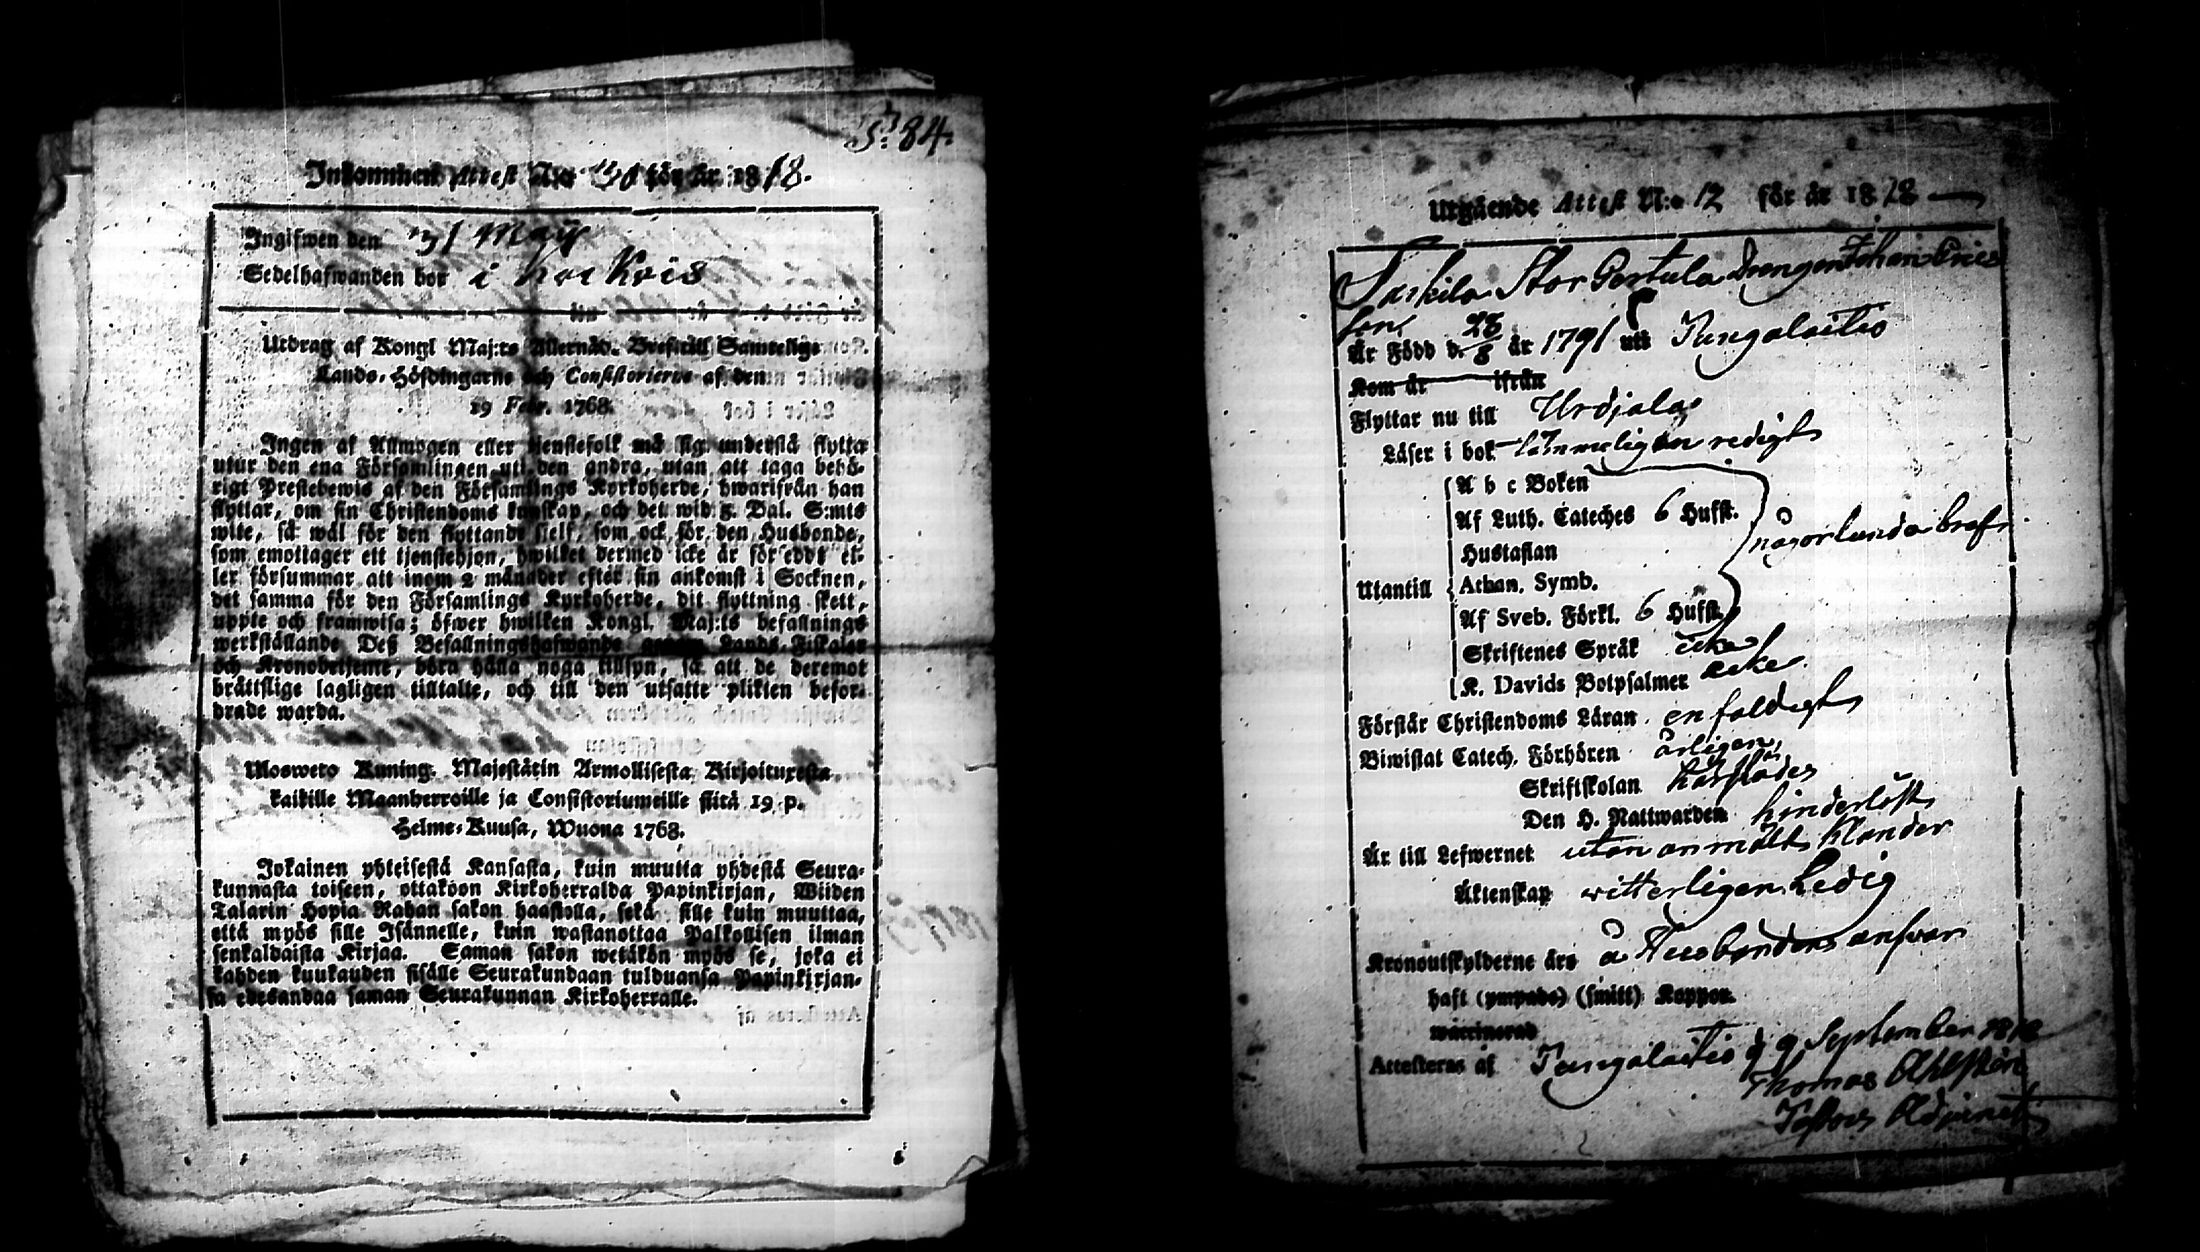 S. 84.
Inkommen Attest N:o 30 för år 1818.
Ingifwen den 31 May
Sedelhafwanden bor i
Utdrag af Kongl Maj:ts Allernåd. Bref till Samtelige
Lands-Höfdingarne och Consistorierne af den
19 Febr. 1768.
Ingen af Allmogen eller tjenstefolk må sig understå flytta
utur den ena Församlingen uti den andra, utan att taga behö-
rigt Prestebewis af den Församlings Kyrkoherde, hwarifrån han
flyttar, om sin Christendoms kunskap, och det wid 5. Dal. S:mts
wite, så wäl för den flyttande sielf, som ock för den Husbonde,
som emottager ett tjenstehjon, hwilket dermed icke är försedt el-
ler försummar att inom 2 månader efter sin ankomst i Socknen,
det samma för den Församlings Kyrkoherde, dit flyttning skett,
uppte och framwisa; öfwer hwilken Kongl. Maj:ts befallnings
werkställande Deß Befallningshafwande genom Lands-Fiskaler
och Kronobetjente, böra hålla noga tillsyn, så att de deremot
bråttslige lagligen tilltalte, och till den utsatte plikten befor-
drade warda.
Ulosweto Kuning. Majestätin Armollisesta Kirjoituxesta,
kaikille Maanherroille ja Consistoriumeille siitä 19 p.
Helme-Kuusa, Wuona 1768.
Jokainen yhteisestä Kansasta, kuin muutta yhdestä Seura-
kunnasta toiseen, ottakoon Kirkoherralda Papinkirjan, Wiiden
Talarin Hopia Rahan sakon haastolla, sekä sille kuin muuttaa,
että myös sille Isännelle, kuin wastanottaa Palkollisen ilman
senkaldaista Kirjaa. Saman sakon wetäkön myös se, joka ei
kahden kuukauden sisälle Seurakundaan tulduansa Papinkirjan-
sa edesandaa saman Seurakunnan Kirkoherralle.
Utgående Attest N:o 12 för år 1818
Saskila Stor Pertula Drengen Johan Erics
son
Är Född d. 28/8 år 1791 uti Pungalaitio
Kom år ifrån
Flyttar nu till Urdjala
Läser i bok temmeligen redigt
A b c Boken
Af Luth. Cateches 6 Hufst.
någorlunda braf
Hustaflan
Utantill Athan. Symb.
Af Sveb. Förkl. 6 Hufst.
Skriftenes Språk icke
K. Davids Botpsalmer icke
Förstår Christendoms Läran enfaldigt
Biwistat Catech. Förhören årligen
Skriftskolan härstädes
Den H. Nattwarden hinderlöst
Är till Lefwernet utan anmält klander
Äktenskap witterligen Ledig
Kronoutskylderne äro å Husbondens answar
haft (ympade) (smitt) Koppor.
waccinerad
Attesteras af Pungalaitio d 9 September 1818
Thomas Ahlsten
Pastors Adjunct